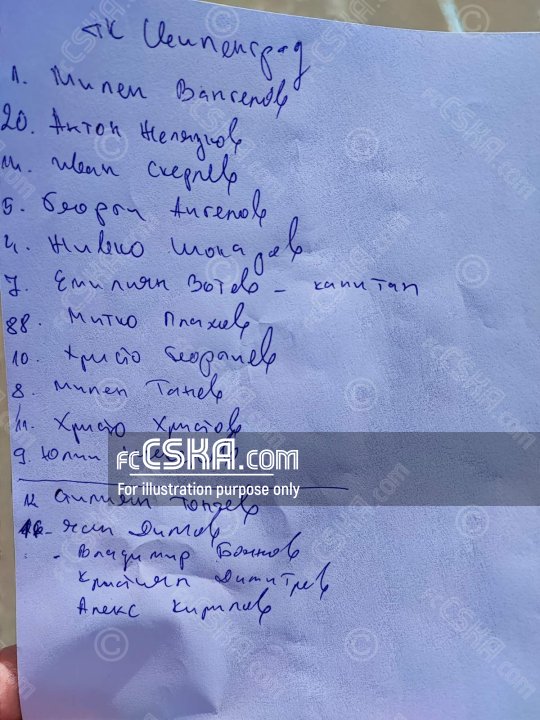 ФК Ивиленград
1. Милен Вангелов
20. Антон Желязков
14. Иван Скерлев
5. Георги Ангелов
4. Живко Шокадев
7. Емилиян Вотев - капитан
88. Митко Плахов
10. Христо Георгиев
8. Милен Танев
11. Христо Христов
9. Юлий
FCCSKA.COM
For illustration purpose only
12 Топчев
16 - Яни Димов
- Владимир Божков
Кристиян Димитров
Алекс Кирилов